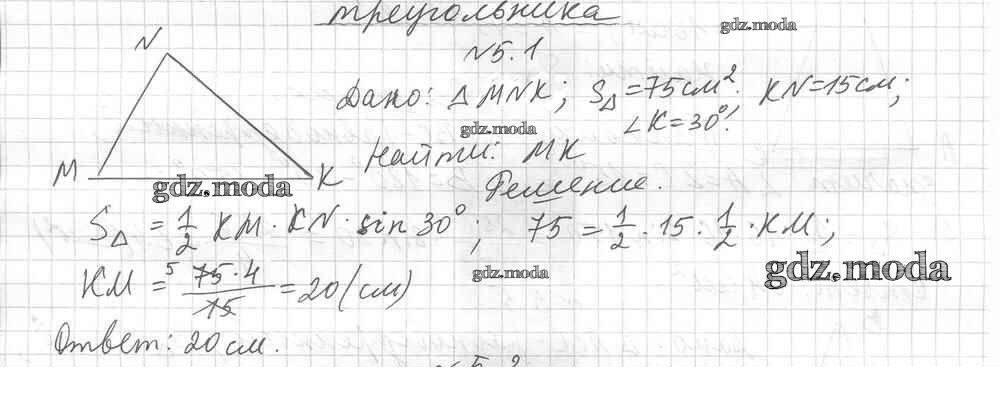 треугольника
gdz.moda
№5.1
N
Дано: △MNK; S△=75см²; KN=15см;
∠K=30°.
gdz.moda
Найти: MK
M K
gdz.moda
Решение.
S△ = 1/2 KM · KN · sin 30°; 75 = 1/2 · 15 · 1/2 · KM;
gdz.moda
gdz.moda
KM = 5 75·4/15 = 20 (см)
Ответ: 20 см.